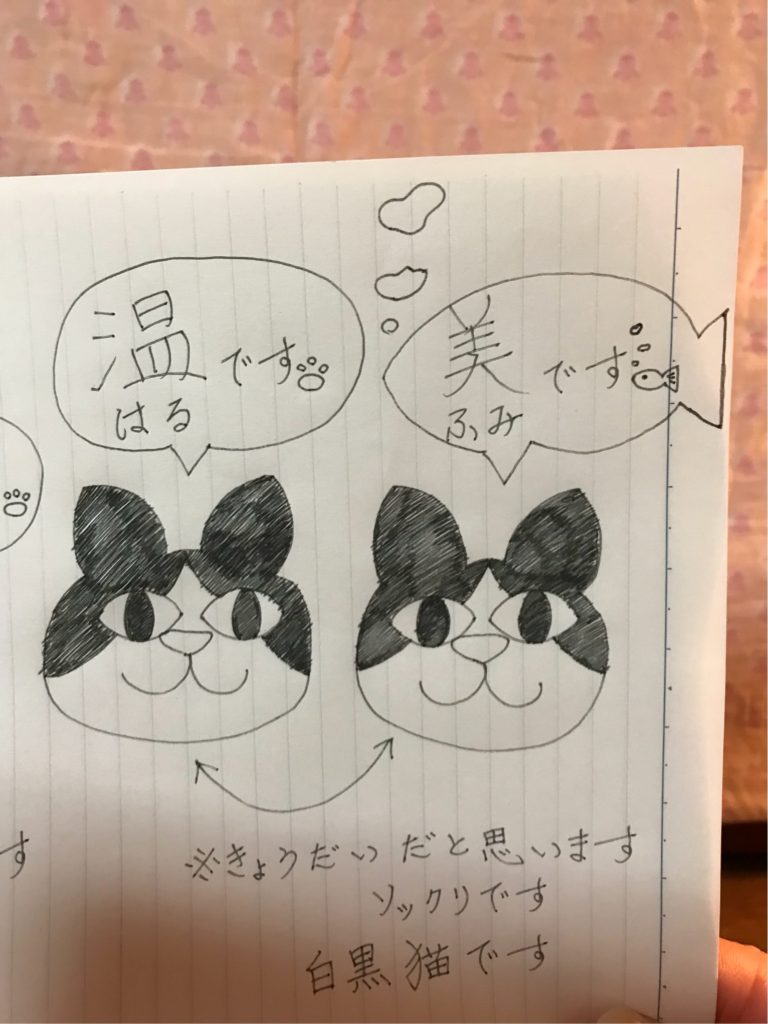 温です
はる
美です
ふみ
※きょうだいだと思います
ソックリです
白黒猫です
す